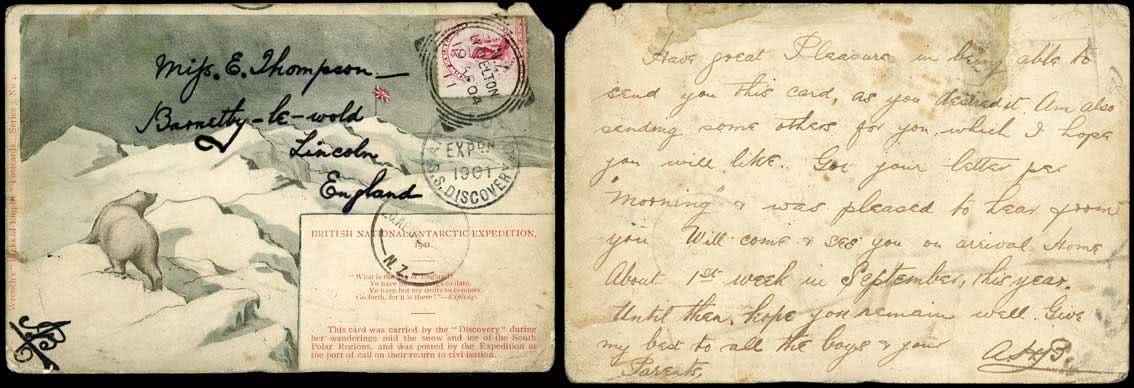 Miss. E. Thompson—
Barnetby-le-wold
Lincoln
England
LYTTELTON
04
EXPDN
1901
S.S. DISCOVERY
N.Z.
BRITISH NATIONAL ANTARCTIC EXPEDITION,
1901.
"What is the of England
Ye have but my to dare,
Ye have but my drifts to conquer.
Go forth, for it is there!"—Kipling.
This card was carried by the "Discovery" during
her wanderings mid the snow and ice of the South
Polar Regions, and was posted by the Expedition at
the port of call on their return to civilisation.
Have great Pleasure in being able to
send you this card, as you desired it. Am also
sending some others for you, which I hope
you will like. Got your letter per
"Morning" & was pleased to hear from
you Will come & see you on arrival Home
About 1st week in September, this year.
Until then, hope you remain well. Give
my best to all the boys & your
Parents,